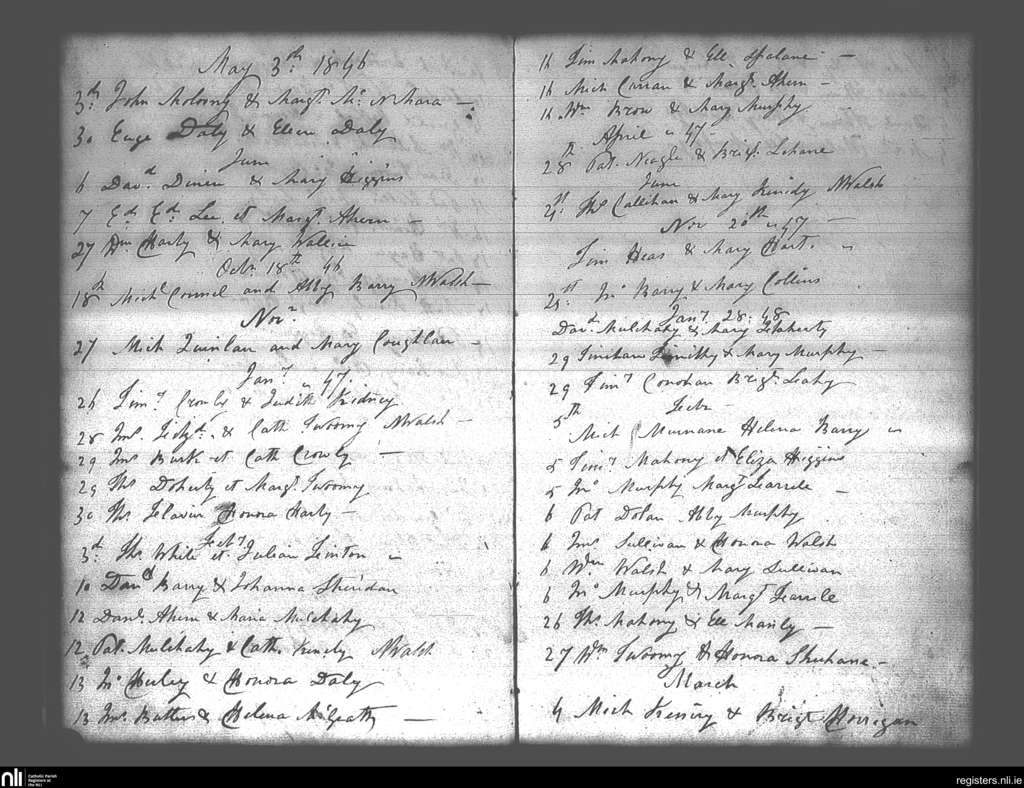 May 3rd 1846
3rd John Moloony & Margt. Mc NMara —
30 Euge Daly & Ellen Daly
June
6 Davd. Dineen & Mary Higgins
7 Ed. Lee et Margt. Ahern —
27 Wm Harty & Mary
Octr. 18th 46
18th Michl Connel and Abby Barry NWalsh —
Novr.
27 Mich Quinlan and Mary Coughlan —
Jany 47
26 Timy Crowly & Judith Kidney
28 Jno. & Cath Twoomy NWalsh —
29 Jno Burk et Cath Crowly —
29 Ths Doherty et Margt. Twoomy
30 Ths. Honora Harty —
Feby
3d Ths White et Julian Linton
10 Danl Barry & Johanna Sheridan
12 Danl. Ahern & Maria Mulchahy
12 Pat. Mulchahy & Cath. NWalsh
13 Jno Hurley & Honora Daly
13 Jno. & Helena McGrath —
16 Tim Mahony & Ell. Spalane —
16 Mich Curran & Margt. Ahern —
16 Wm Brow & Mary Murphy
April 47
28th Pat. Neagle & Brigt. Lehane
June
21st Ths Callihan & Mary NWalsh
Nov 20th 47 —
Tim Heas & Mary Hart.
21st Jno Barry & Mary Collins
Jany. 28: 48
Davd. Mulchahy & Mary Flaherty
29 Timithy & Mary Murphy —
29 Timy Conohan Brigt. Leahy
Feby —
5th
Mich Murnane Helena Barry
5 Timy Mahony et Eliza Higgins
5 Jno Murphy Margt —
6 Pat Dolan Abby Murphy
6 Jno Sullivan & Honora Walsh
6 Wm Walsh & Mary Sullivan
6 Jno Murphy & Margt
26 Ths Mahony & Ell Manly —
27 Wm Twoomy & Honora Shehane. —
March
4 Mich & Brigt Horrigan
nli
Catholic Parish
Registers at
the NLI
registers.nli.ie